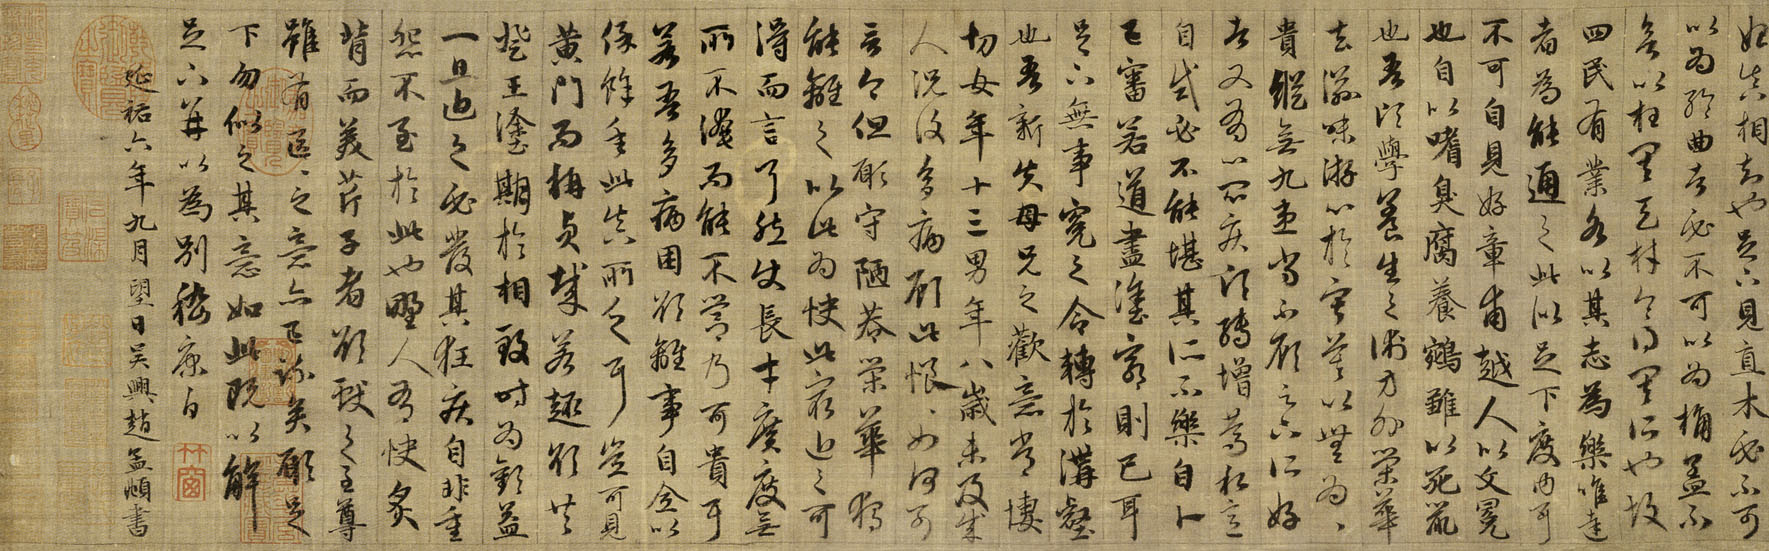 始真相知也足下見直木必不可
以為輪曲者必不可以為桷蓋不
欲以枉其天材令得其所也故
四民有業各以其志為樂唯達
者為能通之此似足下度內耳
不可自見好章甫越人以文冕
也自以嗜臭腐養鵷雛以死鼠
也吾頃學養生之術方外榮華
去滋味游心於寂寞以無為、
貴縱無九患尚不顧足下所好
者又有心悶疾頃轉增篤私意
自試必不能堪其所不樂自卜
已審若道盡塗窮則已耳
足下無事冤之令轉於溝壑
也吾新失母兄之歡意常悽
切女年十三男年八歲未及成
人況復多病顧此悢、如何可
言今但願守陋巷榮華獨
能離之以此為快此最近之可
得而言耳然使長才廣度無
所不淹而能不營乃可貴耳
若吾多病困欲離事自全以
保餘年此真所乏耳豈可見
黃門而稱貞哉若趣欲共
登王塗期於相致時為歡益
一旦迫之必發其狂疾自非重
怨不至於此也野人有快炙
背而美芹子者欲獻之至尊
雖有區、之意亦已疏矣願足
下勿似之其意如此既以解
足下并以為別嵇康白
延祐六年九月望日吳興趙孟頫書